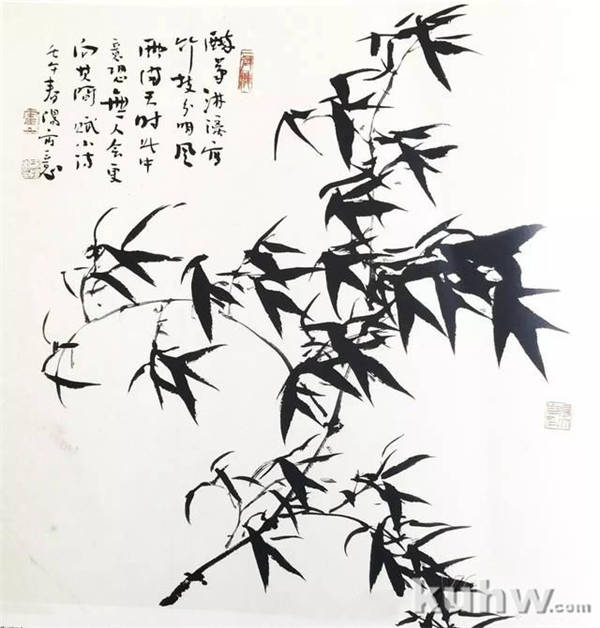 醉笔淋漓写
竹枝分明风
雨满天时此中
意恐无人会更
向其间赋小诗
壬午春
kuihw.com